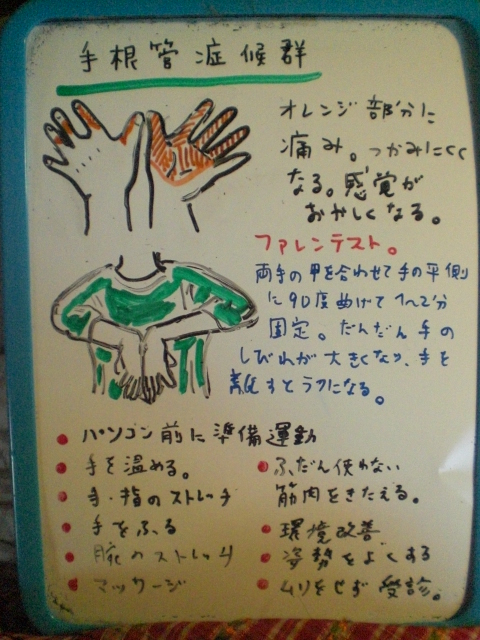 手根管症候群
オレンジ部分に
痛み。つかみにくく
なる。感覚が
おかしくなる。
ファレンテスト。
両手の甲を合わせて手の平側
に90度曲げて1〜2分
固定。だんだん手の
しびれが大きくなり、手を
離すとラクになる。
パソコン前に準備運動
手を温める。
手・指のストレッチ
手をふる
腕のストレッチ
マッサージ
ふだん使わない
筋肉をきたえる。
環境改善
姿勢をよくする
ムリをせず受診。